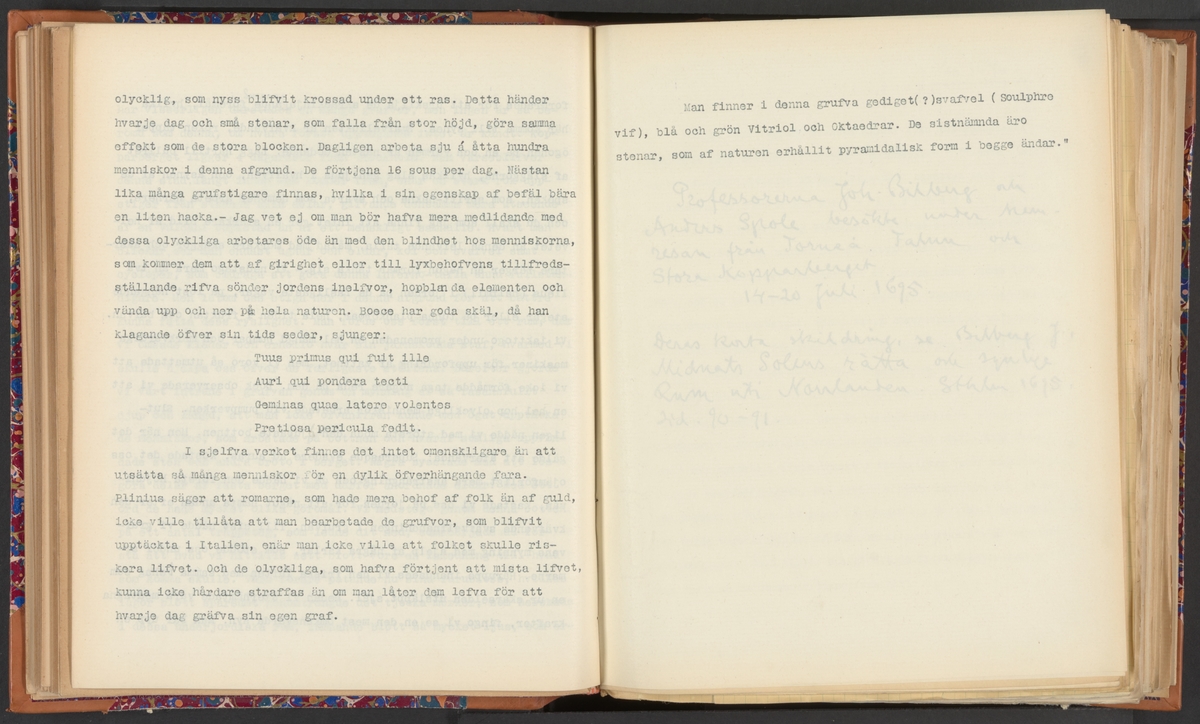 olycklig, som nyss blifvit krossad under ett ras. Detta händer
hvarje dag och små stenar, som falla från stor höjd, göra samma
effekt som de stora blocken. Dagligen arbeta sju á åtta hundra
menniskor i denna afgrund. De förtjena 16 sous per dag. Nästan
lika många grufstigare finnas, hvilka i sin egenskap af befäl bära
en liten hacka.- Jag vet ej om man bör hafva mera medlidande med
dessa olyckliga arbetares öde än med den blindhet hos menniskorna,
som kommer dem att af girighet eller till lyxbehofvens tillfreds-
ställande rifva sönder jordens inelfvor, hopblanda elementen och
vända upp och ner på hela naturen. Boece har goda skäl, då han
klagande öfver sin tids seder, sjunger:
Tuus primus qui fuit ille
Auri qui pondera tecti
Geminas quae latere volentes
Pretiosa pericula fedit.
I sjelfva verket finnes det intet omenskligare än att
utsätta så många menniskor för en dylik öfverhängande fara.
Plinius säger att romarne, som hade mera behof af folk än af guld,
icke ville tillåta att man bearbetade de grufvor, som blifvit
upptäckta i Italien, enär man icke ville att folket skulle ris-
kera lifvet. Och de olyckliga, som hafva förtjent att mista lifvet,
kunna icke hårdare straffas än om man låter dem lefva för att
hvarje dag gräfva sin egen graf.
Man finner i denna grufva gediget(?)svafvel (Soulphre
vif), blå och grön Vitriol och Oktaedrar. De sistnämnda äro
stenar, som af naturen erhållit pyramidalisk form i begge ändar."
Professorerna Joh. Bilberg och
Anders Spole besökte under hem-
resan från Torneå Falun och
Stora Kopparberget
14-20 Juli 1695.
Deras korta skildring, se Bilberg J.
Midnats Solens rätta och synlige
Rum uti Norrlanden. Sthlm 1695.
Sid. 90-91